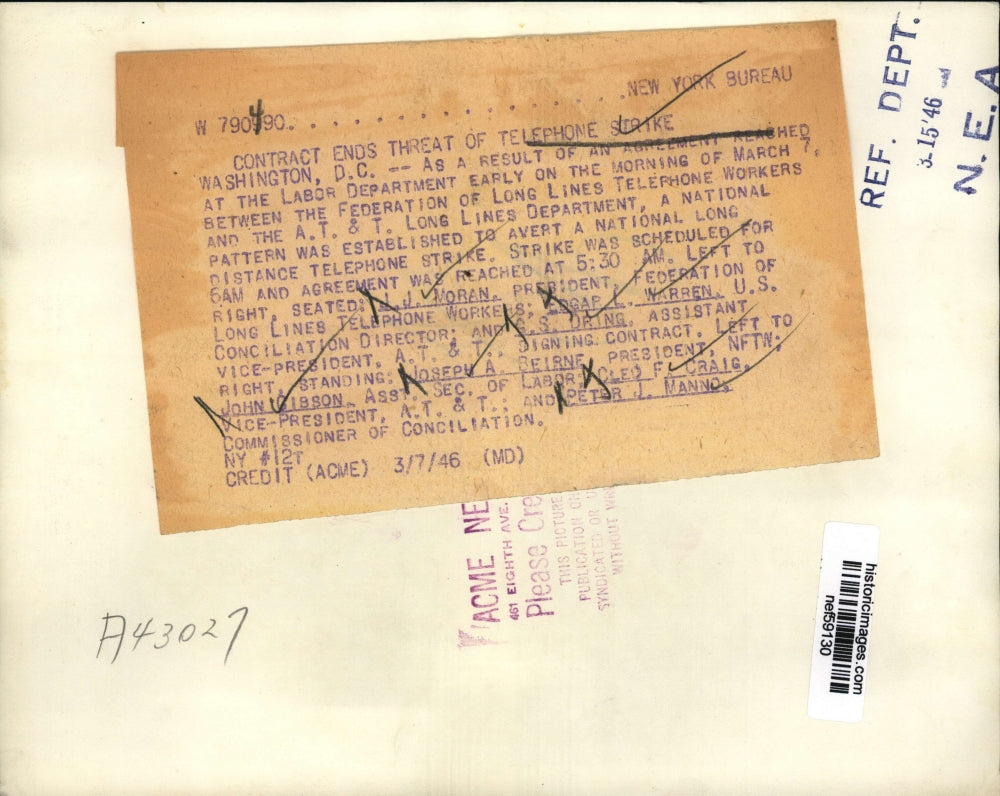 NEW YORK BUREAU
W 790490. . . . . . . . . . . . . . .
CONTRACT ENDS THREAT OF TELEPHONE STRIKE
WASHINGTON, D.C. -- AS A RESULT OF AN AGREEMENT REACHED
AT THE LABOR DEPARTMENT EARLY ON THE MORNING OF MARCH 7,
BETWEEN THE FEDERATION OF LONG LINES TELEPHONE WORKERS
AND THE A.T. & T. LONG LINES DEPARTMENT, A NATIONAL
PATTERN WAS ESTABLISHED TO AVERT A NATIONAL LONG
DISTANCE TELEPHONE STRIKE. STRIKE WAS SCHEDULED FOR
6AM AND AGREEMENT WAS REACHED AT 5:30 AM. LEFT TO
RIGHT, SEATED: J.J. MORAN, PRESIDENT, FEDERATION OF
LONG LINES TELEPHONE WORKERS; EDGAR L. WARREN, U.S.
CONCILIATION DIRECTOR; AND G.S. DRING, ASSISTANT
VICE-PRESIDENT, A.T. & T., SIGNING CONTRACT. LEFT TO
RIGHT, STANDING: JOSEPH A. BEIRNE, PRESIDENT, NFTW;
JOHN GIBSON, ASST. SEC. OF LABOR; CLEO F. CRAIG,
VICE-PRESIDENT, A.T. & T.; AND PETER J. MANNO,
COMMISSIONER OF CONCILIATION.
NY #12T
CREDIT (ACME) 3/7/46 (MD)
REF. DEPT.
3-15'46
N.E.A
ACME NE
461 EIGHTH AVE.
Please Cre
THIS PICTURE
PUBLICATION ON
SYNDICATED OR U
WITHOUT WRI
A43027
historicimages.com
nef59130